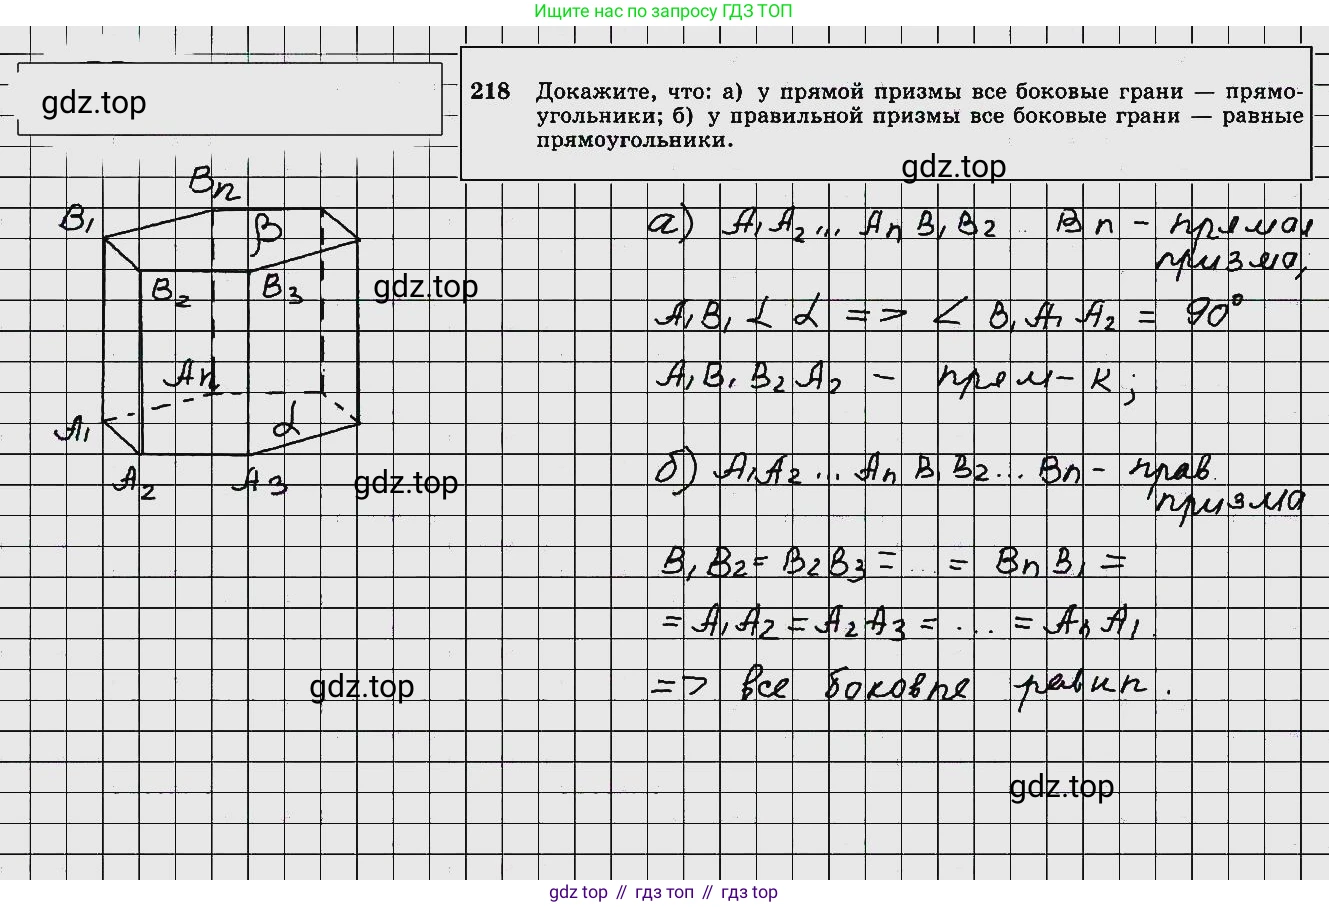 Ищите нас по запросу ГДЗ ТОП
gdz.top
218 Докажите, что: а) у прямой призмы все боковые грани — прямо-
угольники; б) у правильной призмы все боковые грани — равные
прямоугольники.
gdz.top
Bn
B₁
β
B₂
B₃
gdz.top
An
A₁
α
A₂
A₃
gdz.top
а) A₁A₂... An B₁B₂ .. Bn - прямая
призма,
A₁B₁ ⊥ α => ∠ B₁A₁A₂ = 90°
A₁B₁B₂A₂ - прям-к;
б) A₁A₂... An B₁B₂... Bn - прав.
призма
B₁B₂ = B₂B₃ = ... = BnB₁ =
= A₁A₂ = A₂A₃ = ... = AnA₁
=> все боковые
gdz.top
gdz.top
gdz top // гдз топ // гдз top